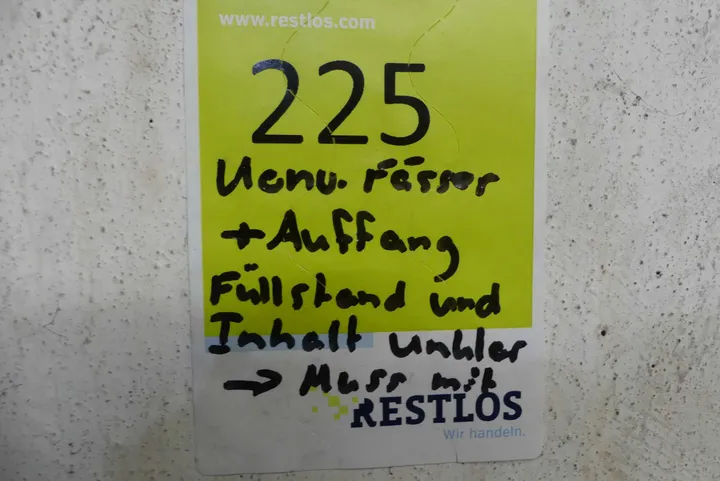 www.restlos.com
225
Fässer
+ Auffang
Füllstand und
Inhalt unklar
→ Muss mit
RESTLOS
Wir handeln.